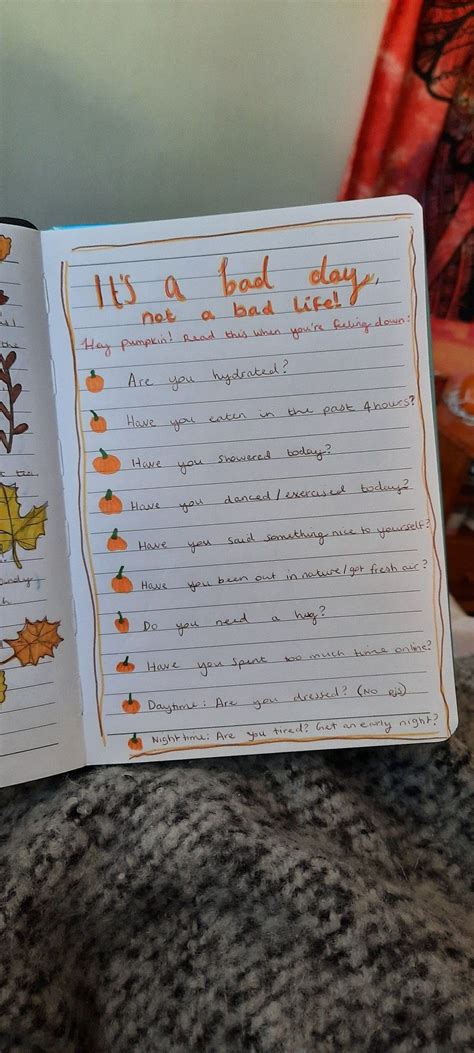 It's a bad day,
not a bad life!
Hey pumpkin! Read this when you're feeling down:
Are you hydrated?
Have you eaten in the past 4 hours?
Have you showered today?
Have you danced/exercised today?
Have you said something nice to yourself?
Have you been out in nature/got fresh air?
Do you need a hug?
Have you spent too much time online?
Daytime: Are you dressed? (No pjs)
Nighttime: Are you tired? Get an early night?